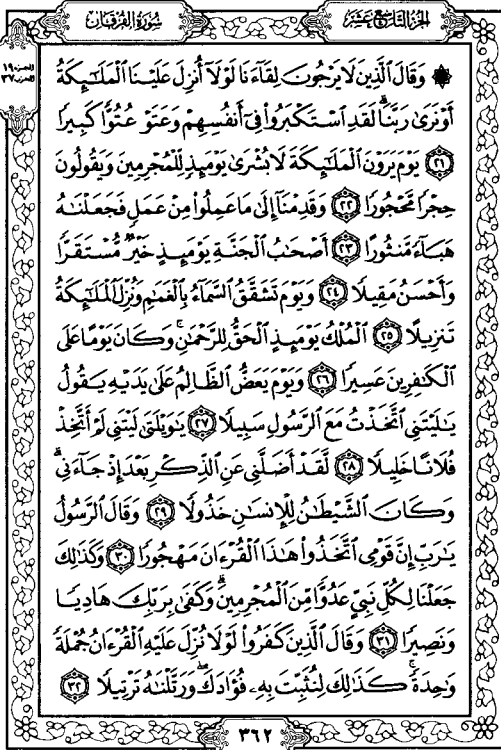 سُورَةُ الفُرْقَان
الجُزْءُ التَّاسِعَ عَشَرَ
۞ وَقَالَ ٱلَّذِينَ لَا يَرْجُونَ لِقَآءَنَا لَوْلَآ أُنزِلَ عَلَيْنَا ٱلْمَلَـٰٓئِكَةُ
أَوْ نَرَىٰ رَبَّنَا ۗ لَقَدِ ٱسْتَكْبَرُوا۟ فِىٓ أَنفُسِهِمْ وَعَتَوْ عُتُوًّا كَبِيرًا
﴿٢١﴾ يَوْمَ يَرَوْنَ ٱلْمَلَـٰٓئِكَةَ لَا بُشْرَىٰ يَوْمَئِذٍ لِّلْمُجْرِمِينَ وَيَقُولُونَ
حِجْرًا مَّحْجُورًا ﴿٢٢﴾ وَقَدِمْنَآ إِلَىٰ مَا عَمِلُوا۟ مِنْ عَمَلٍ فَجَعَلْنَـٰهُ
هَبَآءً مَّنثُورًا ﴿٢٣﴾ أَصْحَـٰبُ ٱلْجَنَّةِ يَوْمَئِذٍ خَيْرٌ مُّسْتَقَرًّا
وَأَحْسَنُ مَقِيلًا ﴿٢٤﴾ وَيَوْمَ تَشَقَّقُ ٱلسَّمَآءُ بِٱلْغَمَـٰمِ وَنُزِّلَ ٱلْمَلَـٰٓئِكَةُ
تَنزِيلًا ﴿٢٥﴾ ٱلْمُلْكُ يَوْمَئِذٍ ٱلْحَقُّ لِلرَّحْمَـٰنِ ۚ وَكَانَ يَوْمًا عَلَى
ٱلْكَـٰفِرِينَ عَسِيرًا ﴿٢٦﴾ وَيَوْمَ يَعَضُّ ٱلظَّالِمُ عَلَىٰ يَدَيْهِ يَقُولُ
يَـٰلَيْتَنِى ٱتَّخَذْتُ مَعَ ٱلرَّسُولِ سَبِيلًا ﴿٢٧﴾ يَـٰوَيْلَتَىٰ لَيْتَنِى لَمْ أَتَّخِذْ
فُلَانًا خَلِيلًا ﴿٢٨﴾ لَّقَدْ أَضَلَّنِى عَنِ ٱلذِّكْرِ بَعْدَ إِذْ جَآءَنِى ۗ
وَكَانَ ٱلشَّيْطَـٰنُ لِلْإِنسَـٰنِ خَذُولًا ﴿٢٩﴾ وَقَالَ ٱلرَّسُولُ
يَـٰرَبِّ إِنَّ قَوْمِى ٱتَّخَذُوا۟ هَـٰذَا ٱلْقُرْءَانَ مَهْجُورًا ﴿٣٠﴾ وَكَذَٰلِكَ
جَعَلْنَا لِكُلِّ نَبِىٍّ عَدُوًّا مِّنَ ٱلْمُجْرِمِينَ ۗ وَكَفَىٰ بِرَبِّكَ هَادِيًا
وَنَصِيرًا ﴿٣١﴾ وَقَالَ ٱلَّذِينَ كَفَرُوا۟ لَوْلَا نُزِّلَ عَلَيْهِ ٱلْقُرْءَانُ جُمْلَةً
وَٰحِدَةً ۚ كَذَٰلِكَ لِنُثَبِّتَ بِهِۦ فُؤَادَكَ ۖ وَرَتَّلْنَـٰهُ تَرْتِيلًا ﴿٣٢﴾
٣٦٢